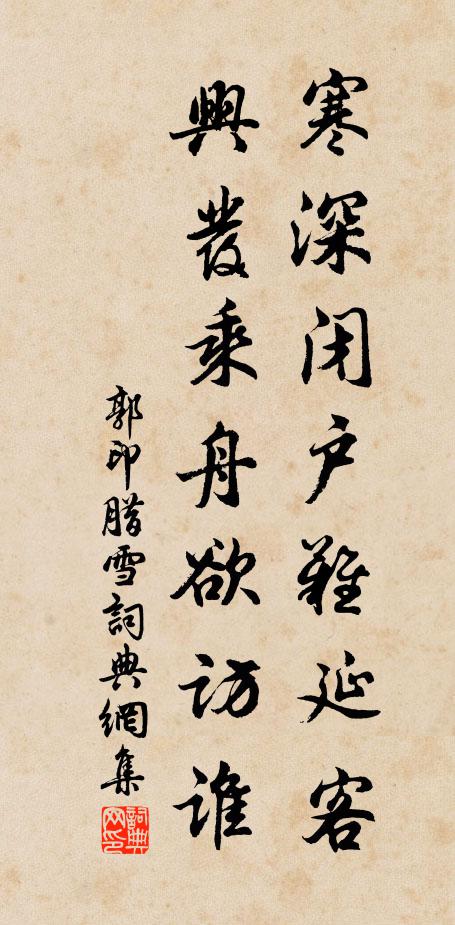 寒深闭户難延客
興發乘舟欲访谁
郭印腊雪詞典網集
詞典网印